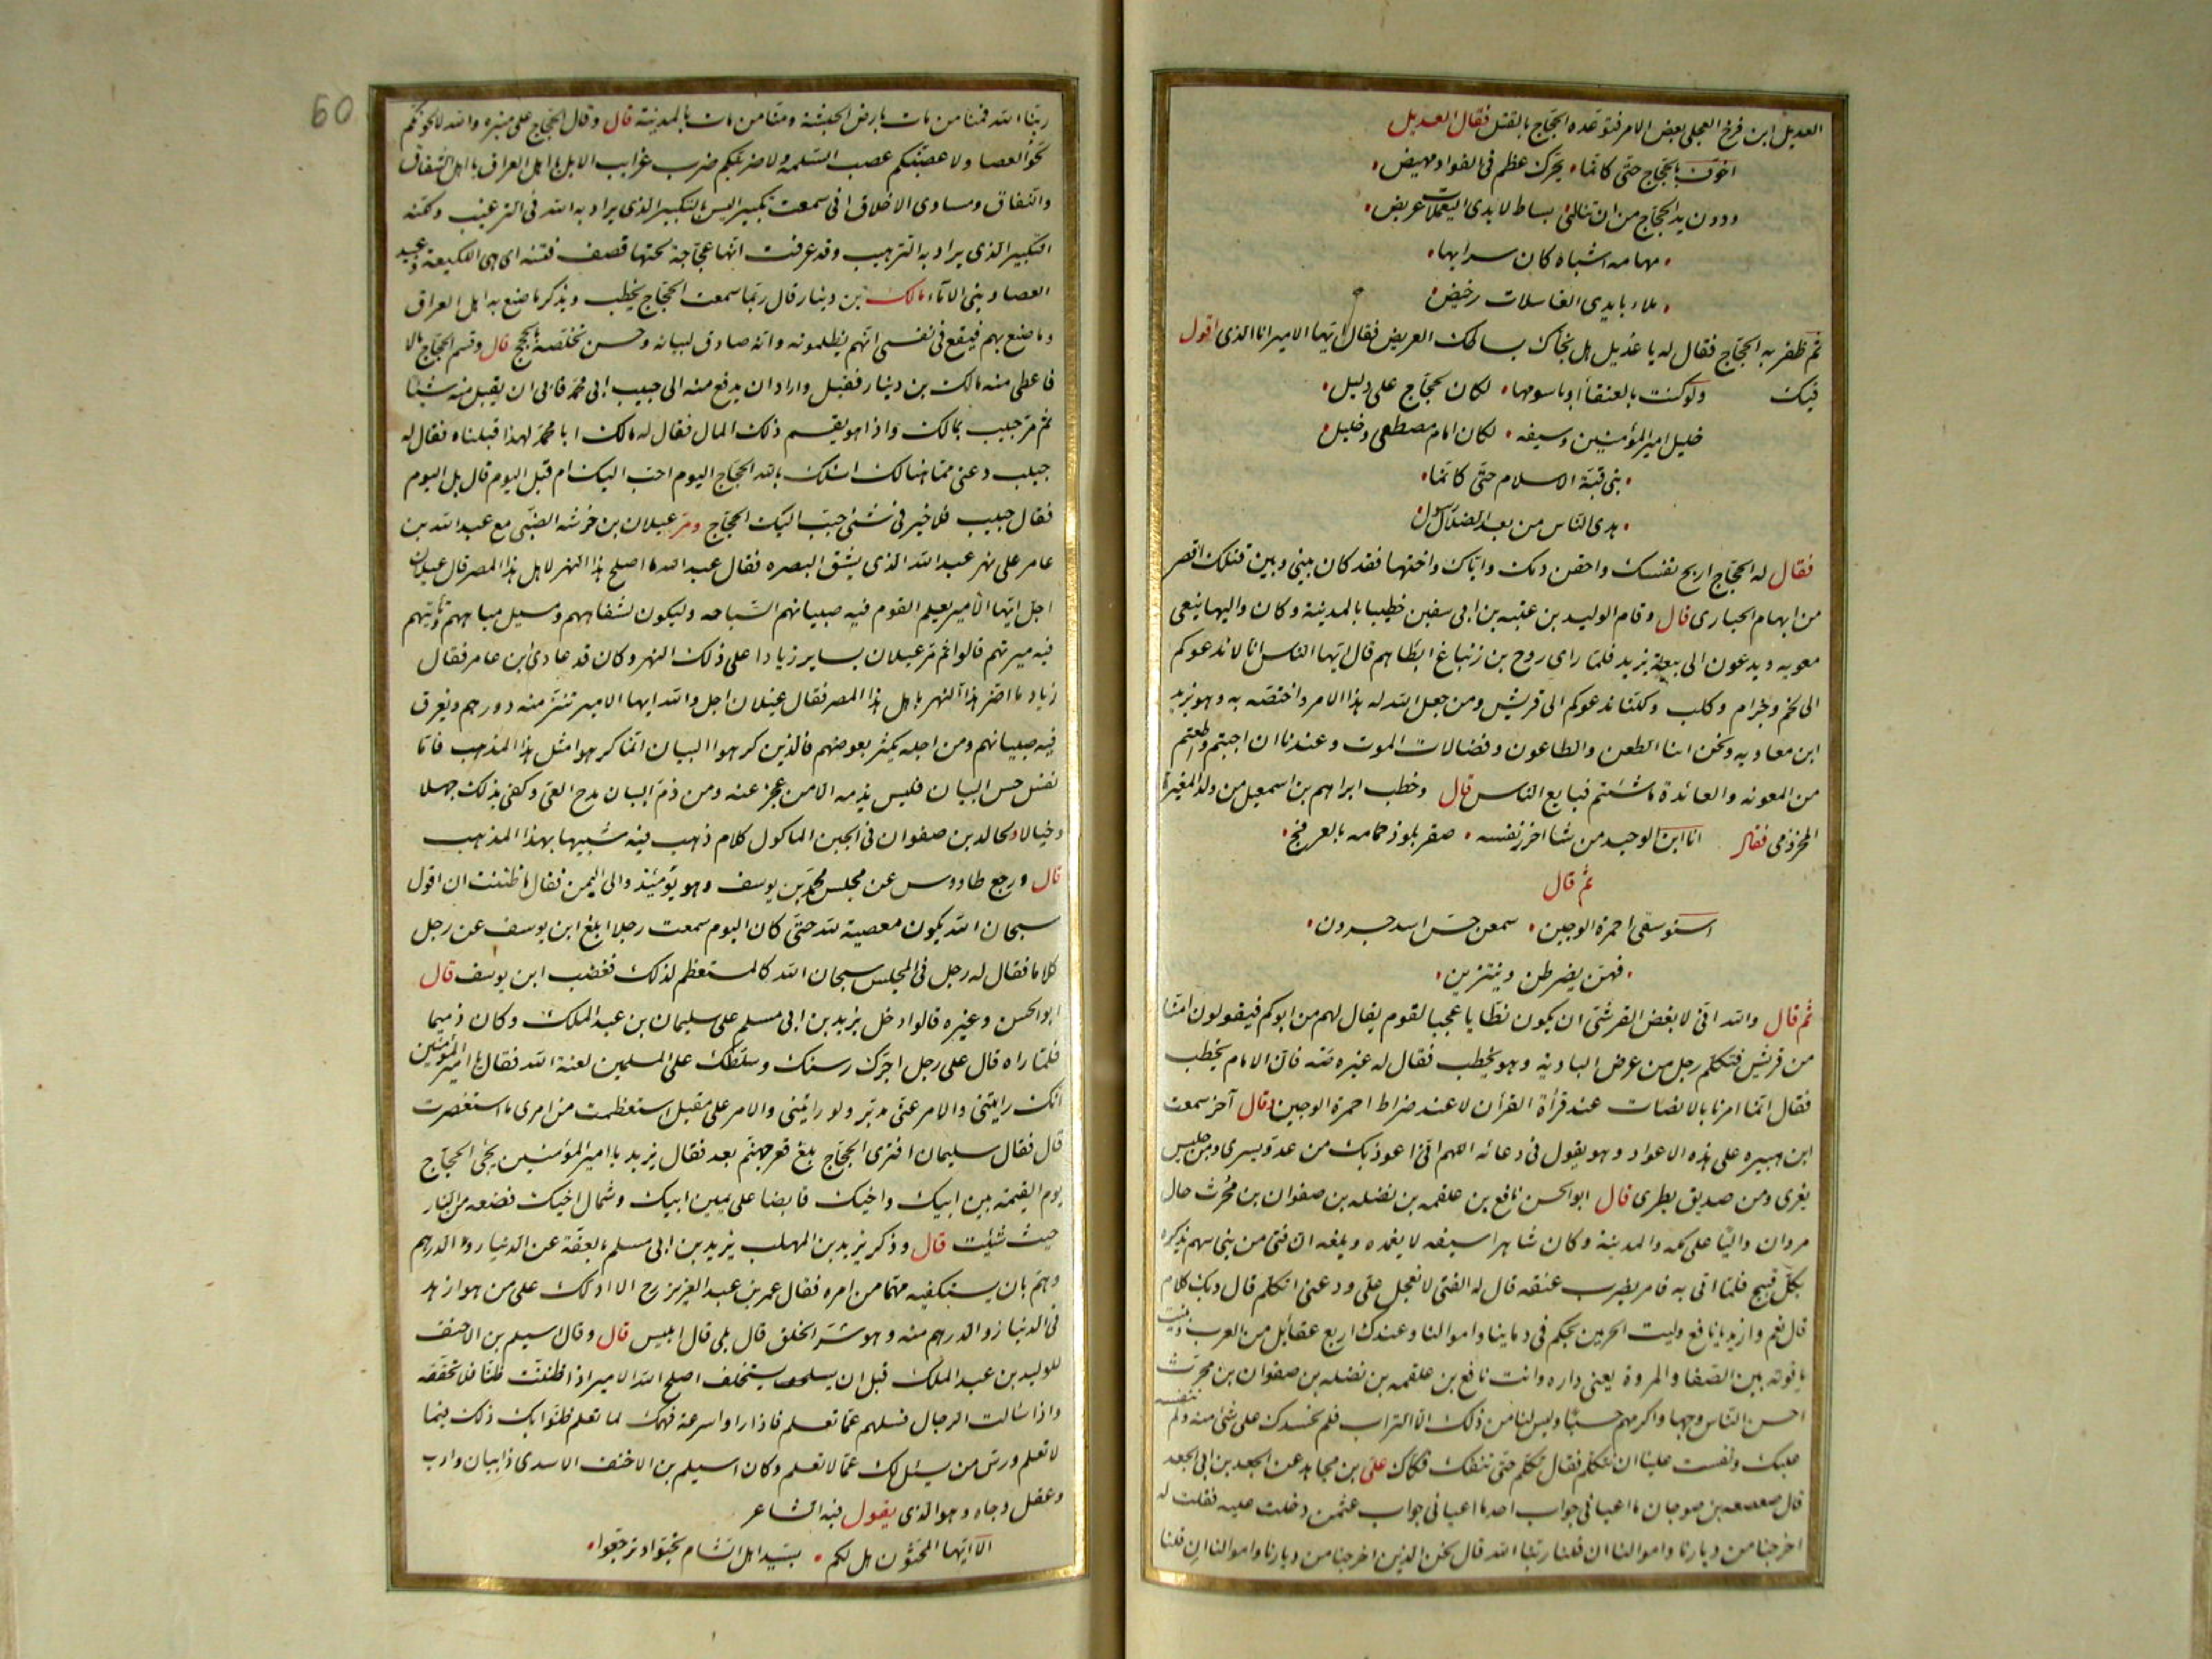 العديل ابن فرخ العجلى بعض الامر فتوعده الحجاج بالقتل فقال العديل
اخوف بالحجاج حتى كانما • يحرك عظم فى الفواد مهيض •
ودون يد الحجاج من ان تنالنى بساط لايدى اليعملات عريض •
• مهامه اشباه كان سرابها •
• ملاء بايدى الغاسلات رخيض •
ثم ظفر به الحجاج فقال له يا عديل هل نجاك بساطك العريض فقال ايها الامير انا الذى اقول
فيك ولو كنت بالعنقا او باسومها • لكان لحجاج على دليل •
خليل امير المؤمنين وسيفه • لكل امام مصطفى وخليل •
• بنى قبة الاسلام حتى كانما •
• هدى الناس من بعد الضلال رسول •
فقال له الحجاج اربح نفسك واحقن دمك واياك واختها فقد كان بينى وبين قتلك اقصر
من ابهام الحبارى قال وقام الوليد بن عتبه بن ابى سفين خطيبا بالمدينة وكان واليها ينعى
معويه ويدعون الى بيعة يزيد فلما راى روح بن زنباغ ابطاهم قال ايها الناس انا لا ندعوكم
الى لخم وجزام وكلب ولكنا ندعوكم الى قريش ومن جعل الله له هذا الامر واختصه به وهو يزيد
ابن معاويه ونحن ابنا الطعن والطاعون وفضالات الموت وعندنا ان اجبتم واطعتم
من المعونه والعائدة ما شئتم فبايع الناس قال وخطب ابراهيم بن اسمعيل من ولد المغيرة
المخزومى فقال انا ابن الوحيد من شا اخزر نفسه • صقر يلوذ حمامه بالعرفج •
ثم قال
استوسقى احمرة الوجين • سمعن حس اسد حردن •
• فهن يضرطن وينتزين •
ثم قال والله انى لابغض القرشى ان يكون فظا يا عجبا لقوم يقال لهم من ابوكم فيقولون امنا
من قريش فتكلم رجل من عرض البادية وهو يخطب فقال له غيره مه فان الامام يخطب
فقال انما امرنا بالانصات عند قرأة القرأن لا عند ضراط احمرة الوجين وقال آخر سمعت
ابن هبيره على هذه الاعواد وهو يقول فى دعائه اللهم انى اعوذ بك من عدو يسرى ومن جليس
يغرى ومن صديق يطرى قال ابو الحسن نافع بن علقمه بن نضله بن صفوان بن محرث خال
مروان واليا على مكه والمدينة وكان شاهرا سيفه لا يغمده وبلغه ان فتى من بنى سهم يذكره
بكل قبيح فلما اتى به فامر بضرب عنقه قال له الفتى لا تعجل على ودعنى اتكلم قال وبك كلام
قال نعم وازيد يا نافع وليت الحرمين تحكم فى دماينا واموالنا وعندك اربع عقائل من العرب وبنيت
ياقوته بين الصفا والمروة يعنى داره وانت نافع بن علقمه بن نضله بن صفوان بن محرث
احسن الناس وجها واكرمهم حسبا وليس لنا من ذلك الا التراب فلم نحسدك على شئ منه ولم ننفسه
عليك ونفست علينا ان نتكلم فقال تكلم حتى تنفك فكاك على بن مجاهد عن الجعد بن ابى الجعد
قال صعصعه بن صوحان ما اعيانى جواب احد ما اعيانى جواب عثمن دخلت عليه فقلت له
اخرجنا من ديارنا واموالنا ان قلنا ربنا الله قال نحن الذين اخرجنا من ديارنا واموالنا ان قلنا
60
ربنا الله فمنا من مات بارض الحبشة ومنا من مات بالمدينة قال وقال الحجاج على منبره والله لالحونكم
لحو العصا ولاعصبنكم عصب السلمه ولاضربنكم ضرب غرايب الابل يا اهل العراق يا اهل الشقاق
والنفاق ومساوى الاخلاق انى سمعت تكبيرا ليس بالتكبير الذى يراد به الله فى الترغيب ولكنه
التكبير الذى يراد به الترهيب وقد عرفت انها عجاجة تحتها قصف فتنه اى بنى اللكيعة وعبيد
العصا وبنى الاماء مالك بن دينار قال ربما سمعت الحجاج يخطب ويذكر ما صنع به اهل العراق
وما صنع بهم فيقع فى نفسى انهم يظلمونه وانه صادق لبيانه وحسن تخلصه بالحجج قال وقسم الحجاج مالا
فاعطى منه مالك بن دينار فقبل واراد ان يدفع منه الى حبيب ابى محمد فابى ان يقبل منه شيئا
ثم مر حبيب بمالك واذا هو يقسم ذلك المال فقال له مالك ابا محمد لهذا قبلناه فقال له
حبيب دعنى مما هنالك اسئلك بالله الحجاج اليوم احب اليك ام قبل اليوم قال بل اليوم
فقال حبيب فلا خير فى شئ حبب اليك الحجاج ومر غيلان بن خرشه الضبى مع عبد الله بن
عامر على نهر عبد الله الذى يشق البصره فقال عبد الله ما اصلح هذا النهر لاهل هذا المصر قال غيلان
اجل ايها الامير يعلم القوم فيه صبيانهم السباحه وليكون لشفاههم ومسيل مياههم وتاتيهم
فيه ميرتهم قالوا ثم مر غيلان يساير زيادا على ذلك النهر وكان قد عادى ابن عامر فقال
زياد ما اضر هذا النهر باهل هذا المصر فقال غيلان اجل والله ايها الامير تنز منه دورهم ويغرق
فيه صبيانهم ومن اجله يكثر بعوضهم فالذين كرهوا البيان انما كرهوا مثل هذا المذهب فاما
نفس حسن البيان فليس يذمه الا من عجز عنه ومن ذم البيان مدح العى وكفى بذلك جهلا
وخبالا ولخالد بن صفوان فى الجبن الماكول كلام ذهب فيه شبيها بهذا المذهب
قال ورجع طاووس عن مجلس محمد بن يوسف وهو يومئذ والى اليمن فقال ما ظننت ان اقول
سبحان الله يكون معصية لله حتى كان اليوم سمعت رجلا ابلغ ابن يوسف عن رجل
كلاما فقال له رجل فى المجلس سبحان الله كالمستعظم لذلك فغضب ابن يوسف قال
ابو الحسن وغيره قالوا دخل يزيد بن ابى مسلم على سليمان بن عبد الملك وكان ذميما
فلما راه قال على رجل اجرك رسنك وسلطك على المسلمين لعنة الله فقال يا امير المؤمنين
انك رايتنى والامر عنى مدبر ولو رايتنى والامر على مقبل استعظمت من امرى ما استصغرت
قال فقال سليمان افترى الحجاج بلغ قعر جهنم بعد فقال يزيد يا امير المؤمنين يجئ الحجاج
يوم القيمة بين ابيك واخيك قابضا على يمين ابيك وشمال اخيك فضعه من النار
حيث شئت قال وذكر يزيد بن المهلب يزيد بن ابى مسلم بالعفة عن الدينار والدرهم
وهم بان يستكفيه مهما من امره فقال عمر بن عبد العزيز رح الا ادلك على من هو ازهد
فى الدينار والدرهم منه وهو شر الخلق قال بلى قال ابليس قال وقال اسيلم بن الاحنف
للوليد بن عبد الملك قبل ان يستخلف اصلح الله الامير اذا ظننت ظنا فلا تحققه
واذا سالت الرجال فسلهم عما تعلم فاذا راوا سرعة فهمك لما تعلم ظنوا بك ذلك فيما
لا تعلم ودس من يسئل لك عما لا تعلم وكان اسيلم بن الاحنف الاسدى ذا بيان وادب
وعقل وجاه وهو الذى يقول فيه الشاعر
الا ايها المحنون هل لكم • بسيد اهل الشام تحبوا وترجعوا •